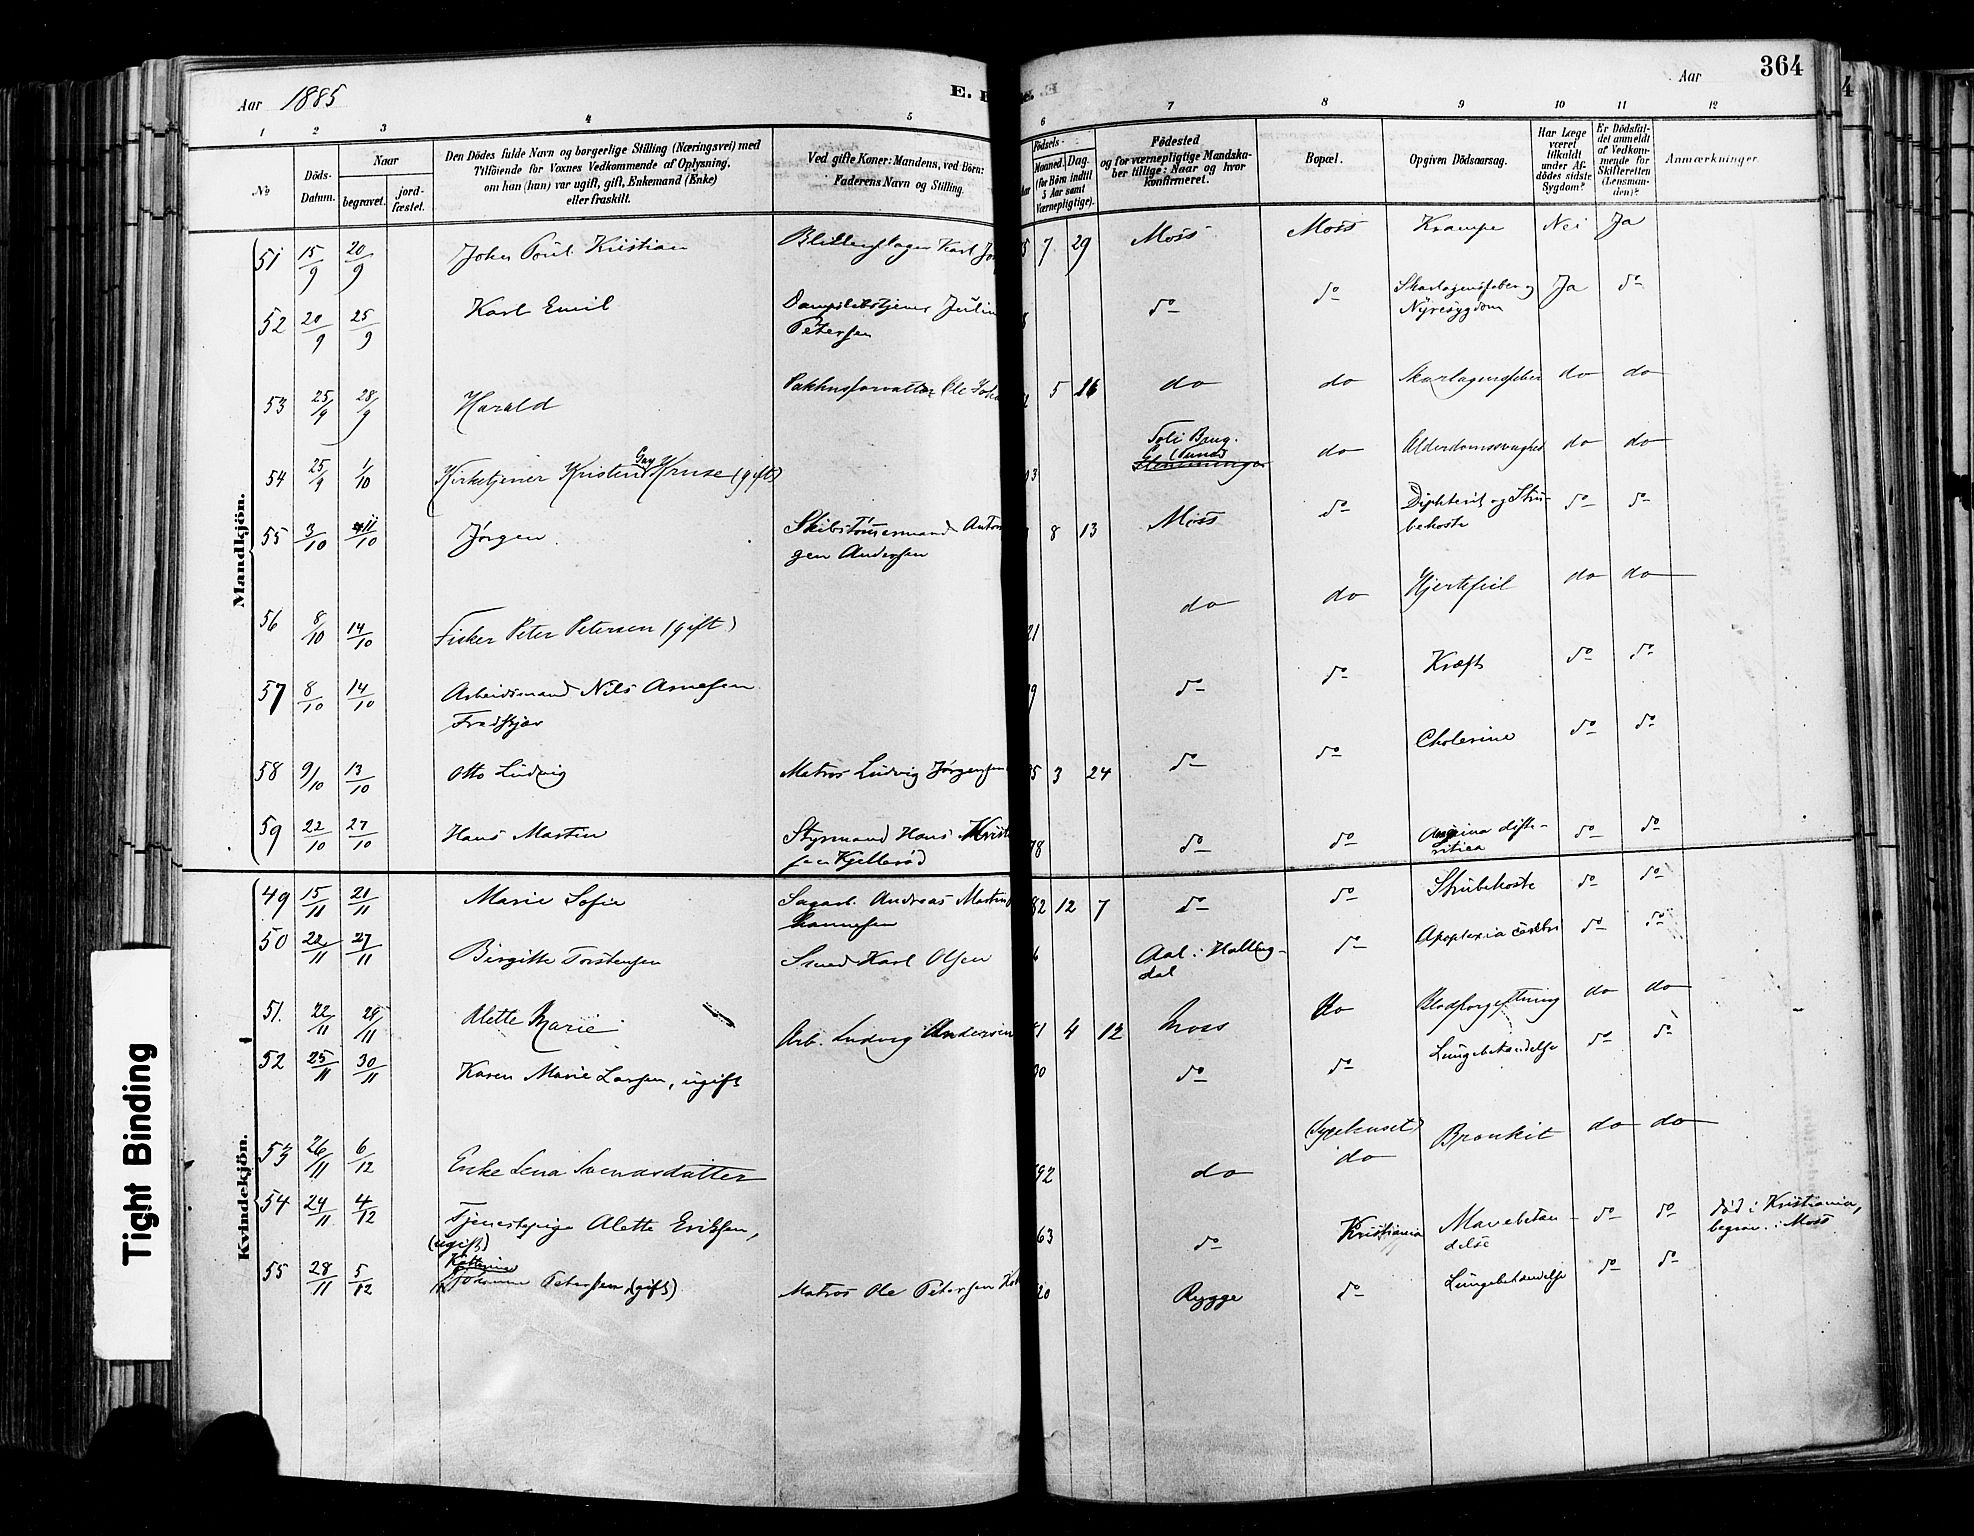 364
Aar 1885
E.
Aar
1 2 3 4 5 6 7 8 9 10 11 12
№
Döds-Datum.
Naar
begravet.
jordfæstet.
Den Dödes fulde Navn og borgerlige Stilling (Næringsvei) med
Tilföiende for Voxnes Vedkommende af Oplysning,
om han (hun) var ugift, gift, Enkemand (Enke)
eller fraskilt.
Ved gifte Koner: Mandens, ved Börn:
Faderens Navn og Stilling.
Födsels-
Maaned. Dag.
(for Börn indtil
5 Aar samt
Værnepligtige).
Födested
og for værnepligtige Mandska-
ber tillige: Naar og hvor
konfirmeret.
Bopæl.
Opgiven Dödsaarsag.
Har Læge
været
tilkaldt
under Af-
dödes sidste
Sygdom?
Er Dödsfal-
det anmeldt
af Vedkom-
mende for
Skifteretten
(Lensman-
den)?
Anmærkninger.
Mandkjön.
51 15/9 20/9 John Poul Kristian Karl 7 29 Moss Moss Krampe Nei Ja
52 20/9 25/9 Karl Emil Julin do do Skarlagensfeber og Ja do
Petersen Nyresygdom
53 25/9 28/9 Harald Pakhusforvalter Ole 5 16 do do Skarlagensfeber do do
54 25/9 1/10 Kirketjener Kristen Gay Kruse (gift) 03 do Alderdomssvaghed do do
55 3/10 11/10 Jørgen Skibstømmermand Anton 8 13 Moss do Diphterit og Stru- do do
gen Andersen behoste
56 8/10 14/10 Fisker Peter Petersen (gift) 21 do do Hjertefeil do do
57 8/10 14/10 Arbeidsmand Nils Arnesen 9 do do Kræft do do
58 9/10 13/10 Otto Ludvig Matros Ludvig Jørgensen 85 3 24 do do Cholerine do do
59 22/10 27/10 Hans Martin Styrmand Hans Krist 78 do do Angina difte- do do
sen Kjellerød ritica
Kvindekjön.
49 15/11 21/11 Marie Sofie Sagarb. Andreas Martin 82 12 7 do do Strubehoste do do
hannesen
50 22/11 27/11 Birgitte Torstensen Smed Karl Olsen 6 Aal i Halling- do Apoplexia cerebri do do
dal
51. 22/11 28/11 Alette Marie Arb. Ludvig Andersen 81 4 12 Moss do Blodforgiftning do do
52 25/11 30/11 Karen Marie Larsen, ugift do do Lungebetændelse do do
53 26/11 6/12 Enke Lena Svendsdatter 92 do (Sygehuset) do Bronkit do do
54 24/11 4/12 Tjenestepige Alette Eriksen, 63 do Kristiania Mavebetæn- do do død i Kristiania,
(ugift) delse begrav. i Moss
55 28/11 5/12 Johanne Petersen (gift) Matros Ole Petersen 20 Rygge do Lungebetændelse do do
Tight Binding